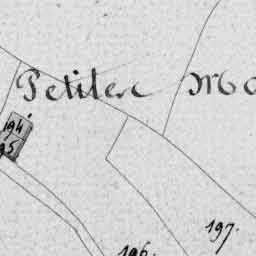 Petites Mo
194
95
197.
196.